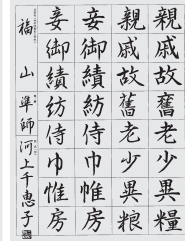 親戚故舊老少異糧
親戚故舊老少異粮
妾御績紡侍巾帷房
妾御績紡侍巾帷房
福山 準師 河上千恵子